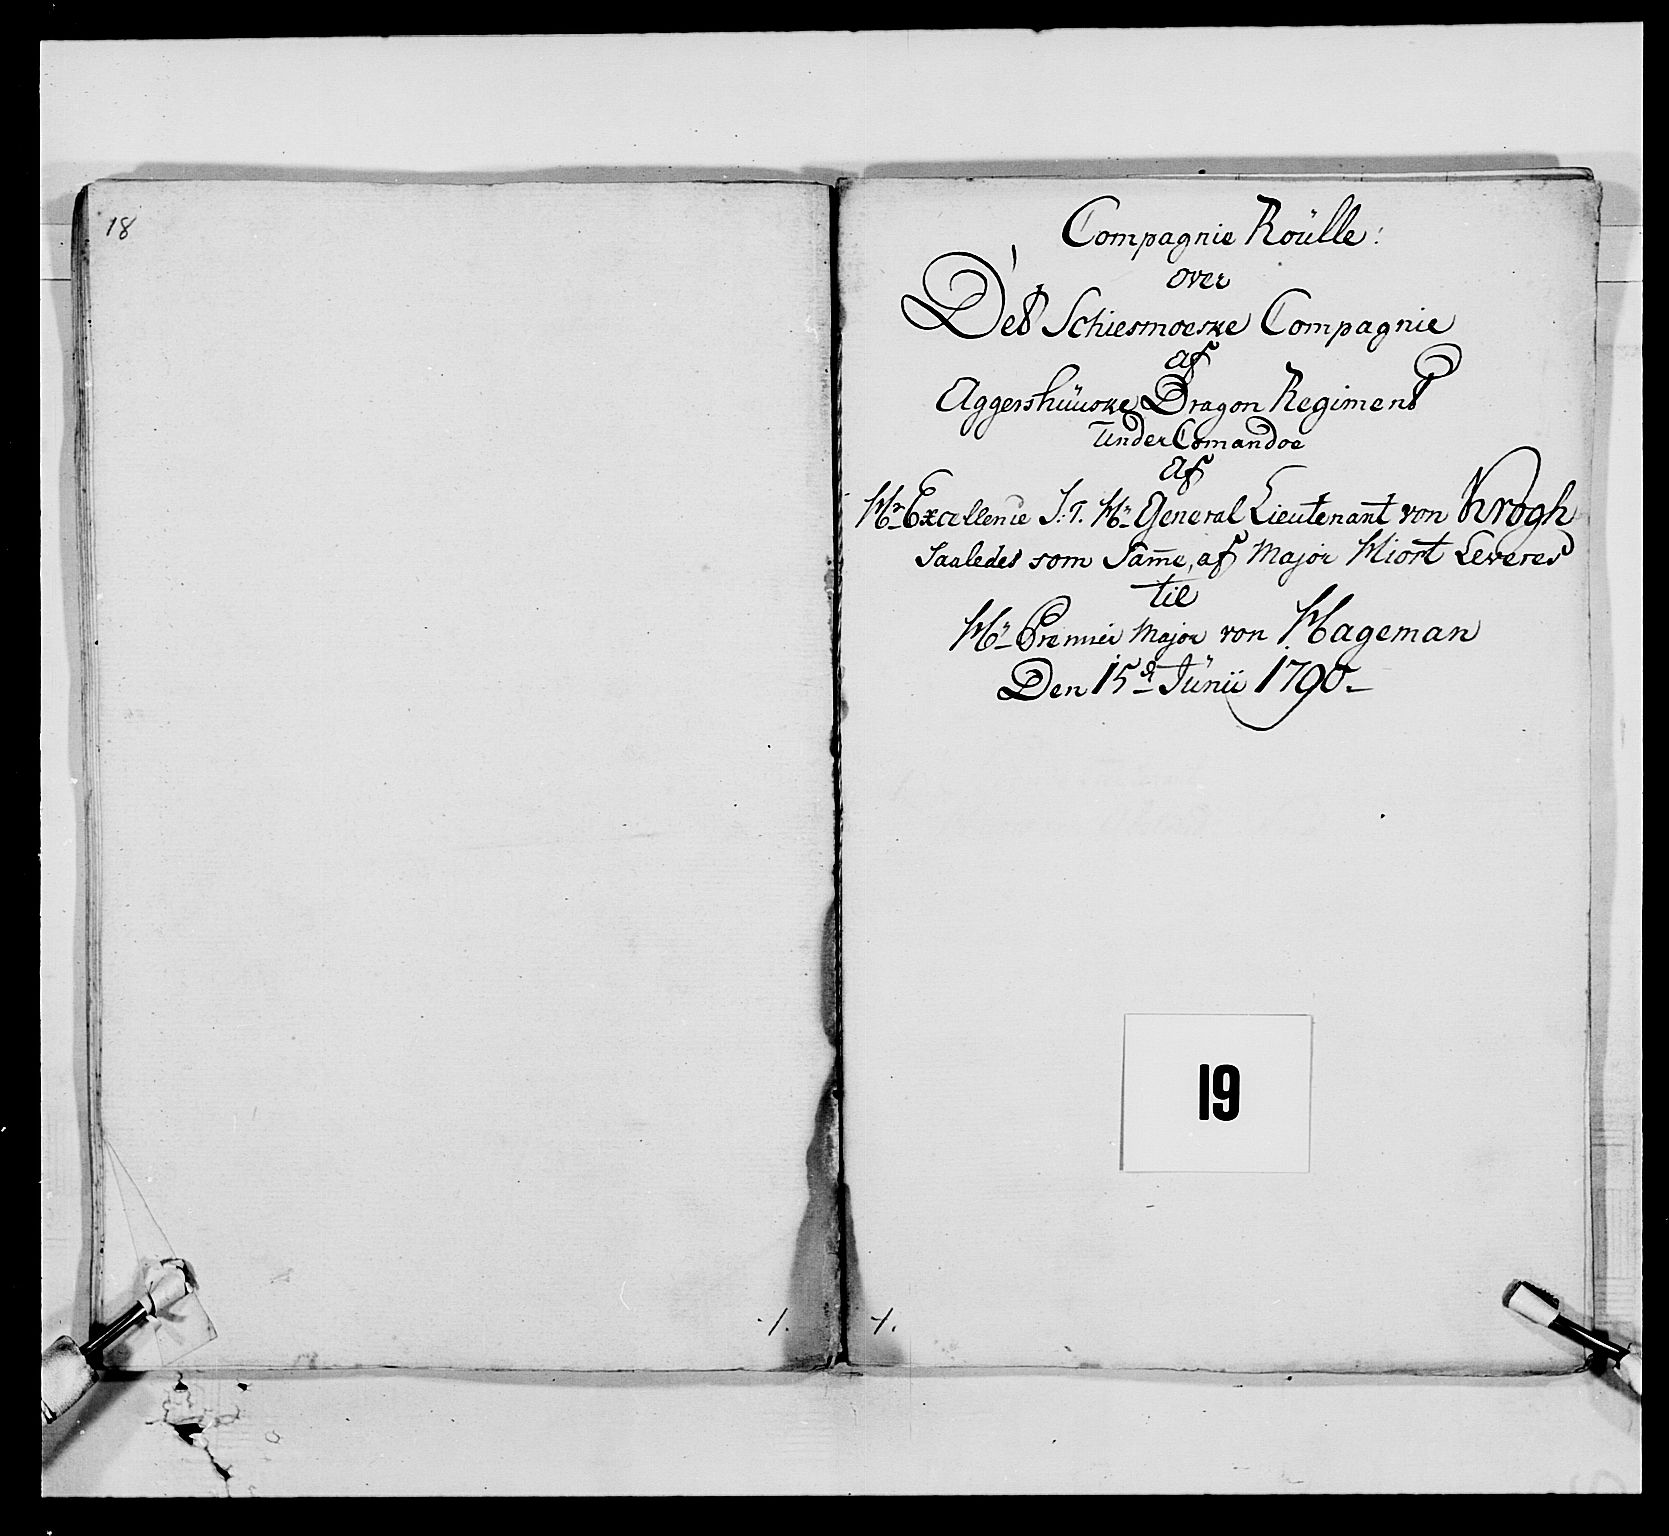 18
Compagnie Roülle:
over
Det Schiesmoeske Compagnie
af
Aggershüuske Dragon Regiment
under Comandoe
af
Hr Excellenie S:T. Hr General Lieutenant von Krogh
Saaledes som Same, af Major Hiort Leveres
til
Hr Premier Major von Hageman
Den 15de Junii 1790
19
./.
./.